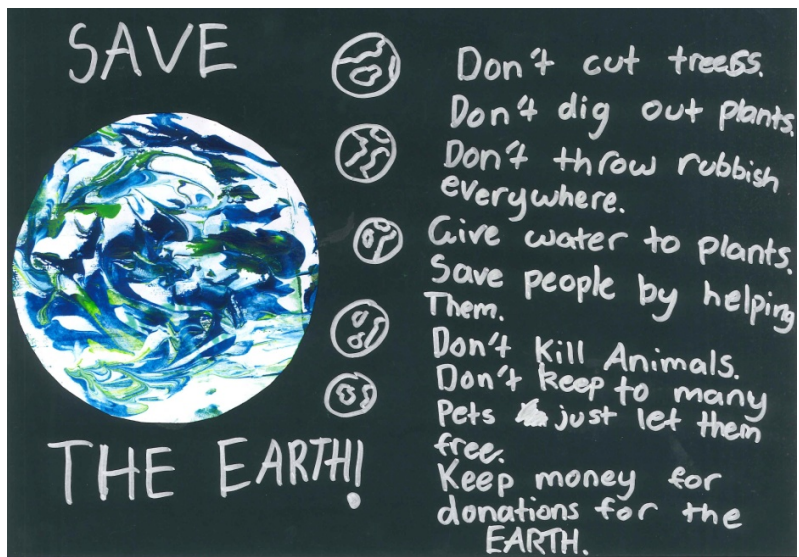 SAVE
THE EARTH!
Don't cut trees.
Don't dig out plants.
Don't throw rubbish
everywhere.
Give water to plants.
Save people by helping
Them.
Don't Kill Animals.
Don't keep to many
Pets just let them
free.
Keep money for
donations for the
EARTH.